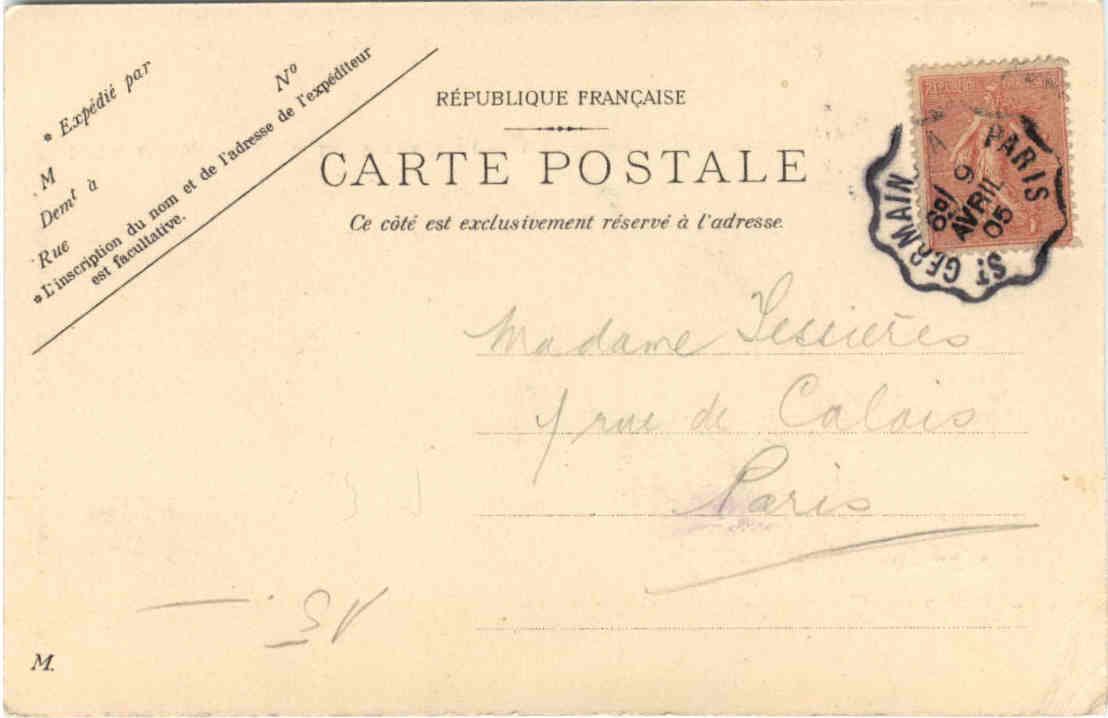 * Expédié par
M
N°
Demt à
Rue
*L'inscription du nom et de l'adresse de l'expéditeur
est facultative.
RÉPUBLIQUE FRANÇAISE
CARTE POSTALE
Ce côté est exclusivement réservé à l'adresse.
PARIS
9
AVRIL
05
ST GERMAIN
Madame
rue de Calais
Paris
M.